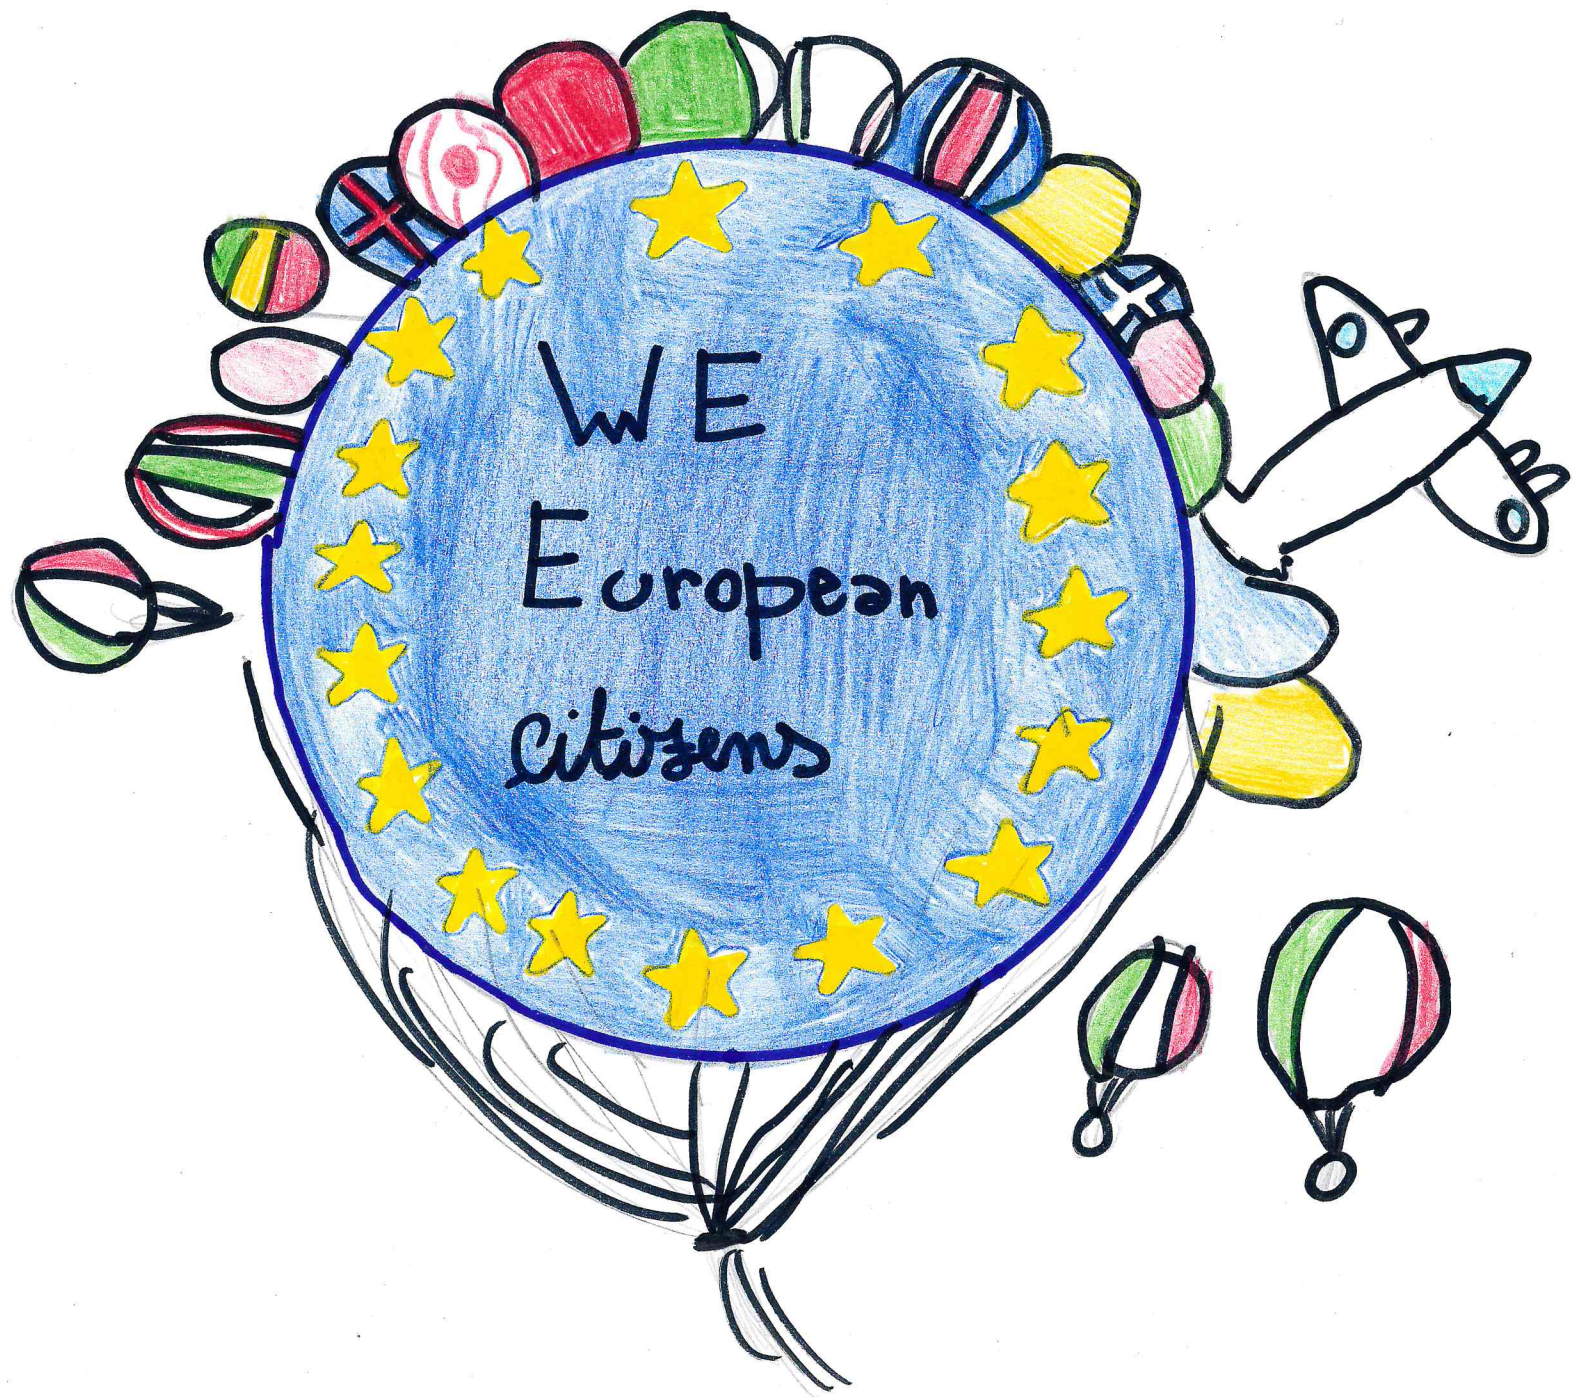 WE
European
citizens